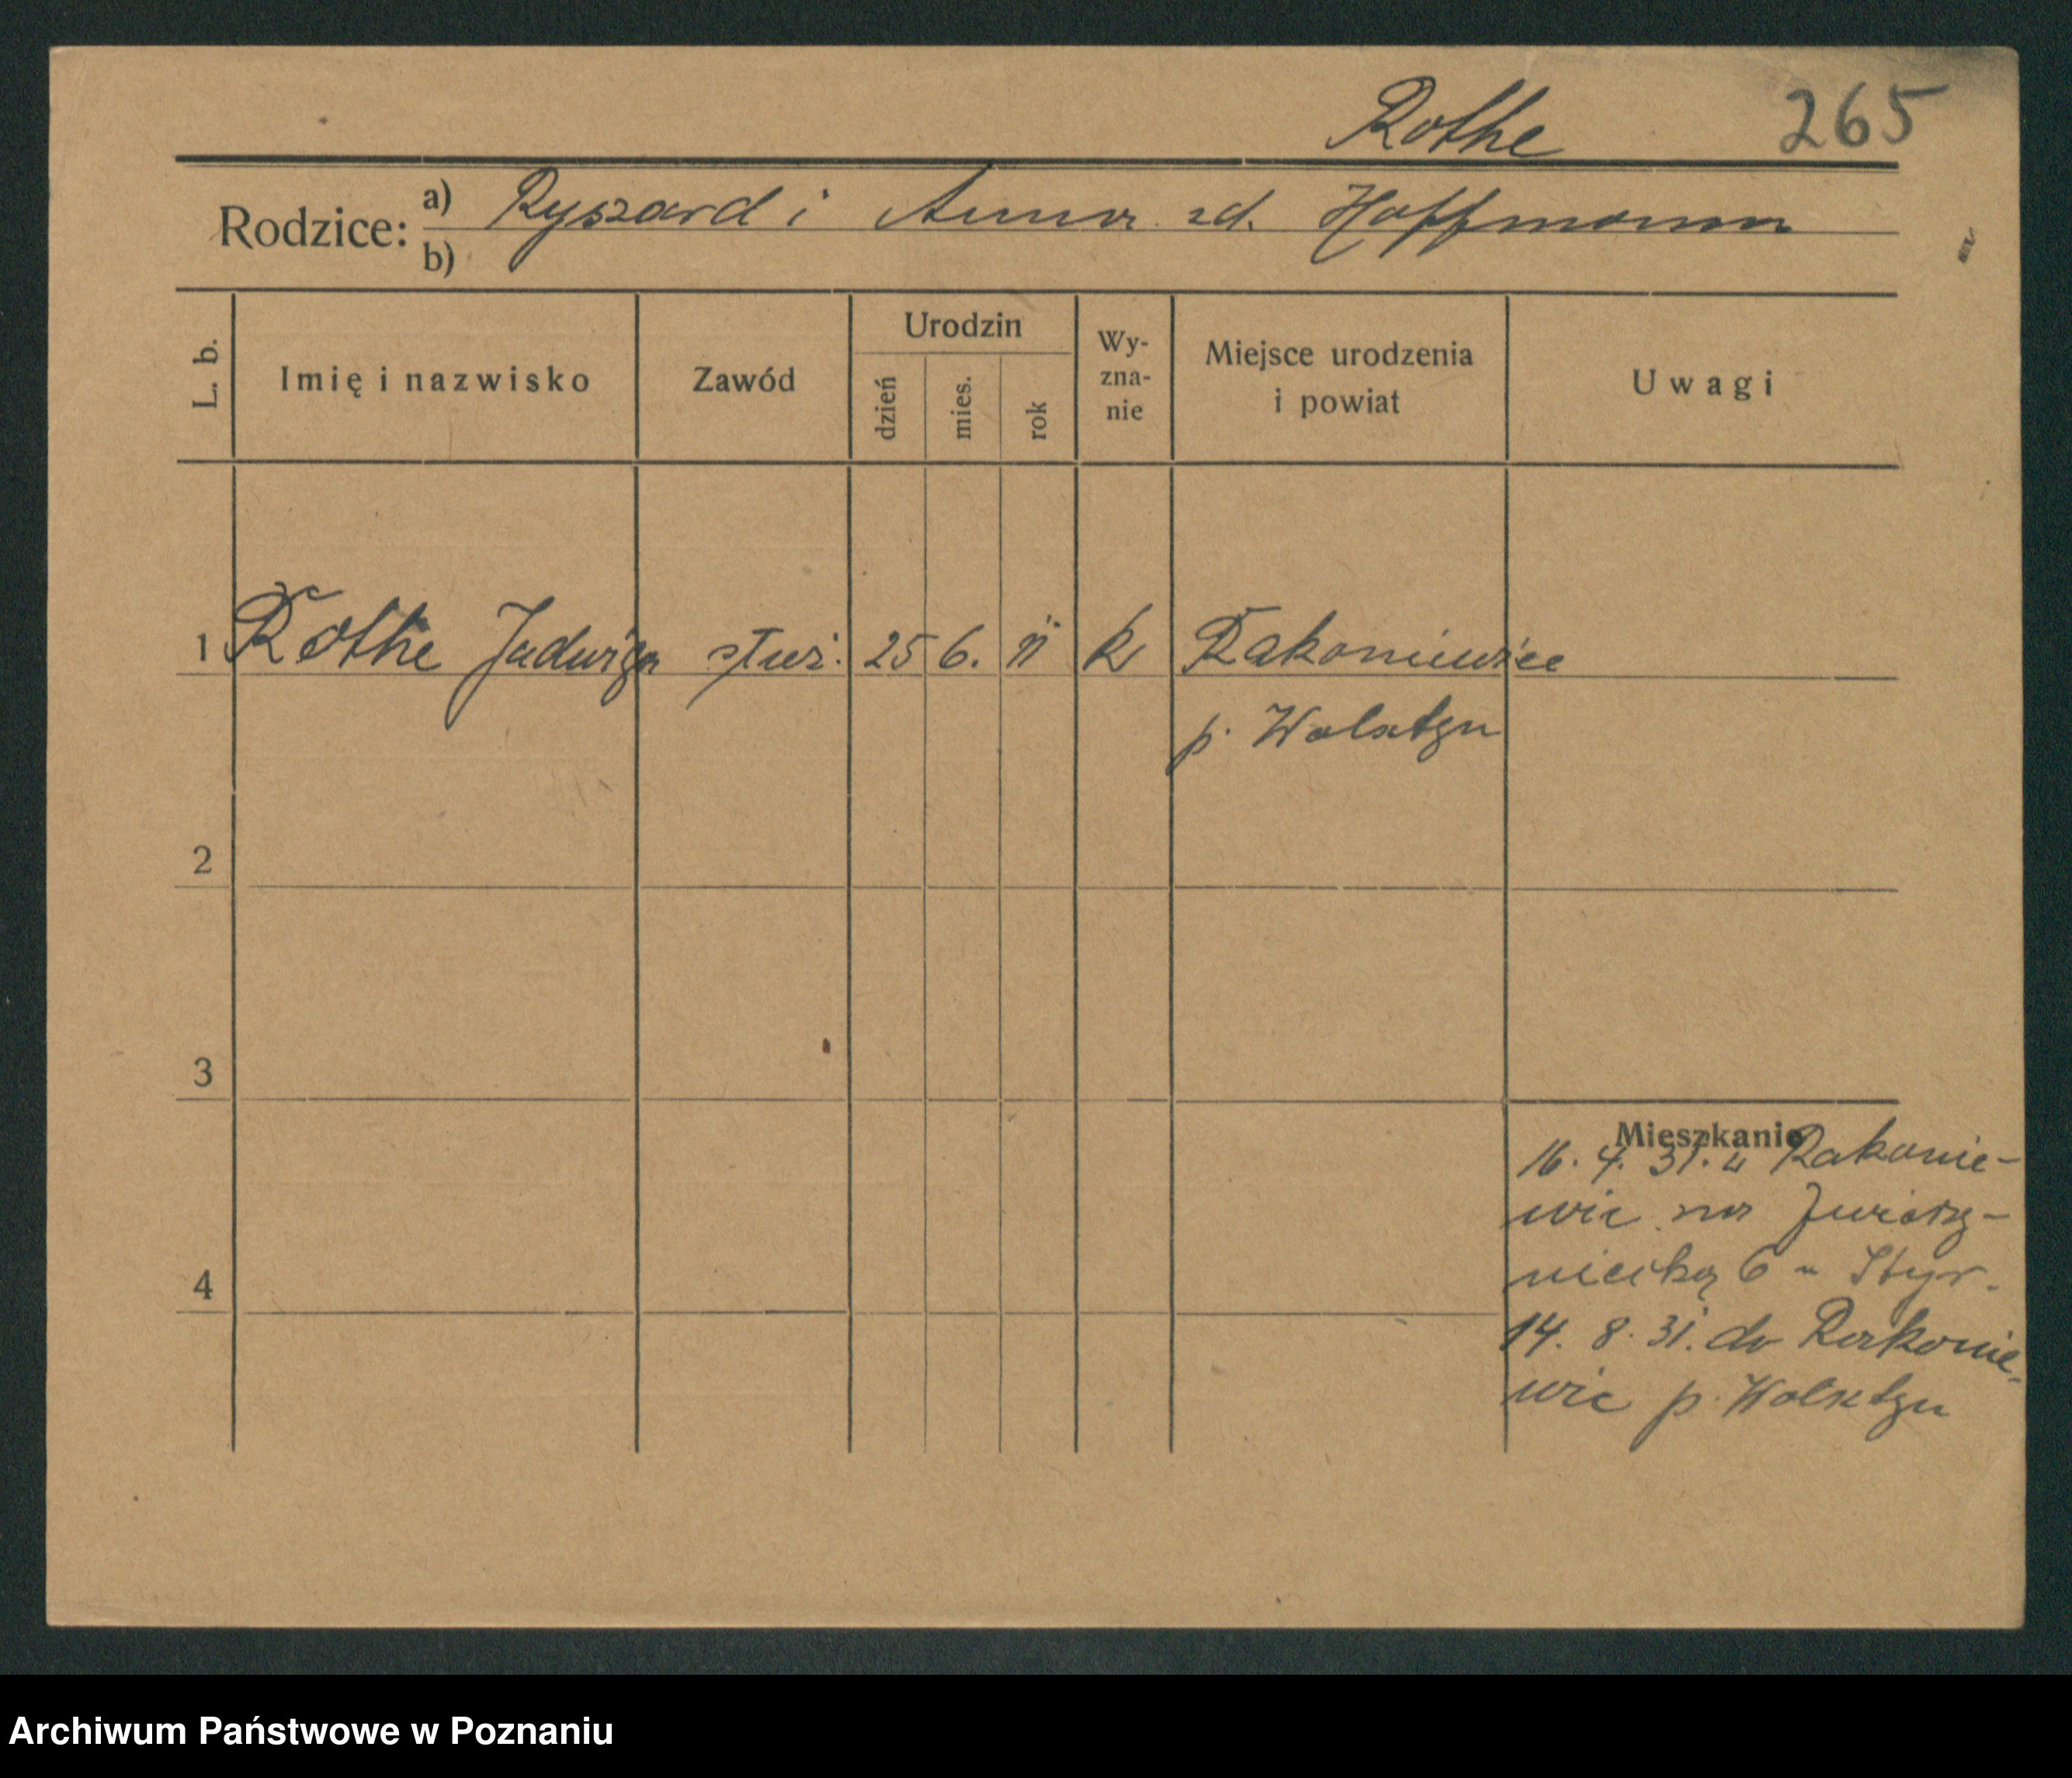 Rothe 265
Rodzice: a) Ryszard i Anna zd. Hoffmann
b)
L. b. Imię i nazwisko Zawód Urodzin dzień mies. rok Wy-zna-nie Miejsce urodzenia i powiat Uwagi
1 Rothe Jadwiga służ. 25 6. 11 k Rakoniewice
p. Wolsztyn
2
3
4
Mieszkanie
16. 4. 31. z Rakonie-
wic na Zwierzy-
niecką 6
14. 8. 31. do Rakonie-
wic p. Wolsztyn
Archiwum Państwowe w Poznaniu